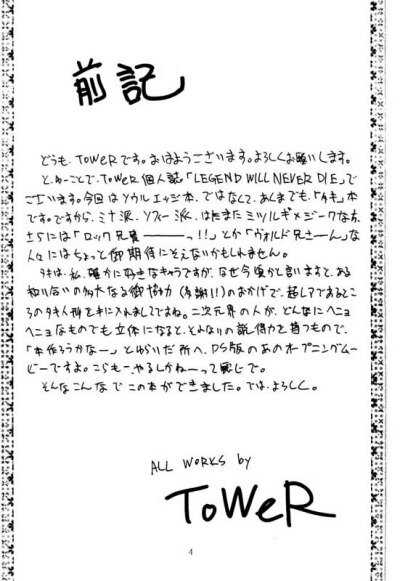 前記
どうも、ToWeRです。おはようございます。よろしくお願いします。
と、ゆーことで、ToWeR個人誌「LEGEND WILL NEVER DIE」で
ございます。今回はソウルエッジ本、ではなくて、あくまでも、「タキ」本
です。ですから、ミナ派、ソフィー派、はたまたミツルギ×ジークな方、
さらには「ロック兄貴————っ!!」とか「ヴォルド兄さーん」な
人々にはちょっと御期待にそえないかもしれません。
タキは、私、確かに好きなキャラですが、なぜ今頃かと言いますと、ある
知り合いの多大なる御協力(多謝!!)のおかげで、超レアであるところ
のタキ人形を手に入れましてですね。二次元界の人が、どんなにヘニョ
ヘニョなものでも立体になると、とんでもない説得力を持つもので、
「本作ろうかなー」とゆらいだ所へ、PS版のあのオープニングムー
ビーですよ。こらもーやるしかねーって感じで。
そんなこんなでこの本ができました。では、よろしく。
ALL WORKS by
ToWeR
4